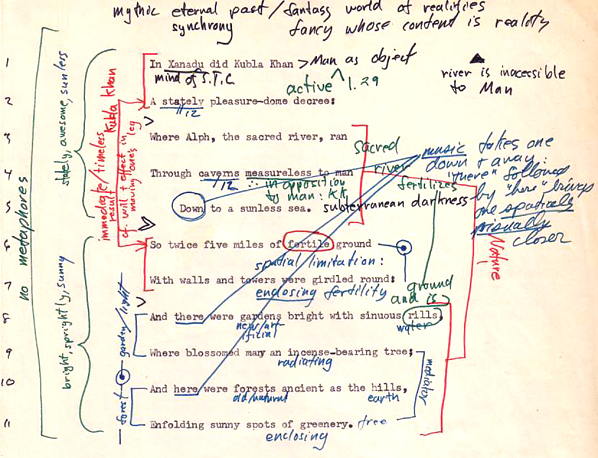 mythic eternal past/fantasy world of realities
synchrony fancy whose content is reality
1 In Xanadu did Kubla Khan > Man as object
mind of S.T.C.
active 1.29
river is inacessible
to Man
2 A stately pleasure-dome decree:
1/12
3 Where Alph, the sacred river, ran
sacred
river
fertilizes
4 Through caverns measureless to man
1/12 ∴ in opposition
to man: KK
5 Down to a sunless sea. subterranean darkness
music takes one
down & away:
"there" followed
by "here" brings
one spatially
visually
closer
6 So twice five miles of fertile ground
spatial limitation:
7 With walls and towers were girdled round:
enclosing fertility
ground
and is
8 And there were gardens bright with sinuous rills,
new/art
ificial
water
9 Where blossomed many an incense-bearing tree;
radiating
10 And here were forests ancient as the hills,
old/natural
earth
11 Enfolding sunny spots of greenery. tree
enclosing
no metaphores
stately, awesome, sunless
bright, sprightly, sunny
immediate/timeless
presentation Kubla Khan
of will & effect in
moving one's
garden/light
forest
mediator
Nature